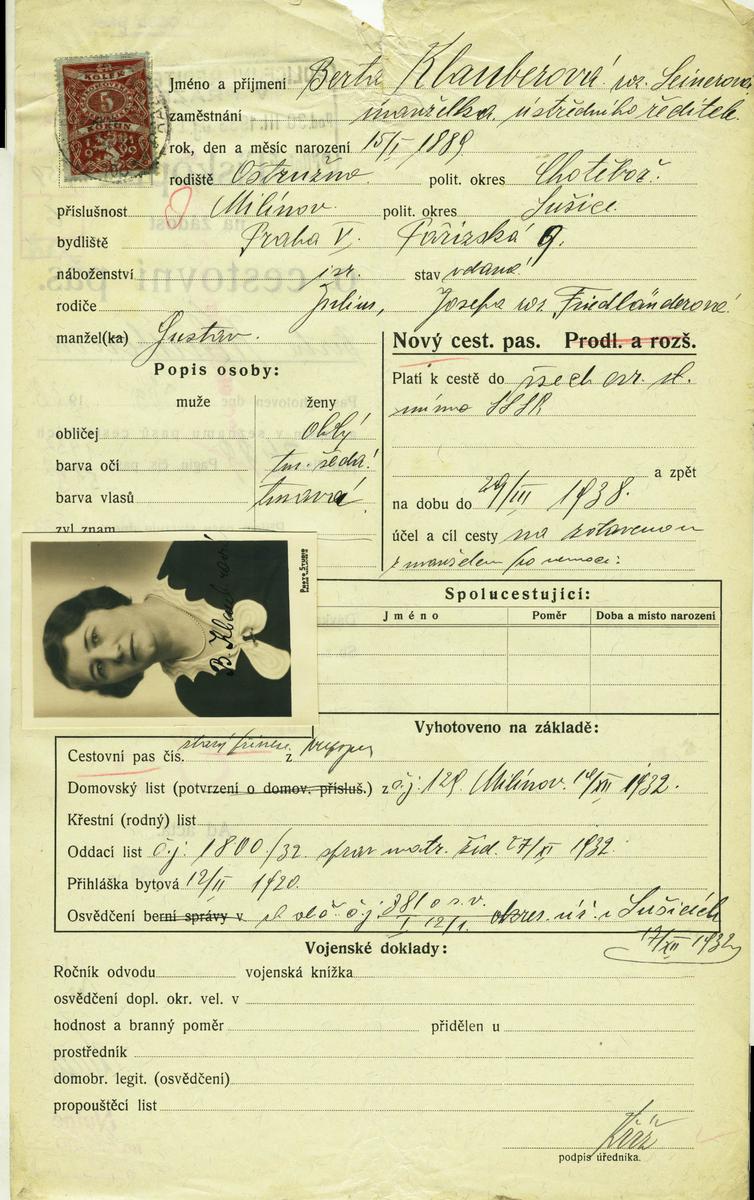 KOLEK
5
KORUN
Jméno a příjmení Berta Klauberová roz. Seinerová
zaměstnání manželka ústředního ředitele
rok, den a měsíc narození 15/I 1889
rodiště Ostružno polit. okres Chotěboř
příslušnost Milínov polit. okres Sušice
bydliště Praha V. Pařížská 9.
náboženství isr. stav vdaná
rodiče Julius, Josefa roz. Friedländerová
manžel(ka) Gustav
Nový cest. pas. Prodl. a rozš.
Popis osoby:
muže ženy
obličej oblý
barva očí tm. šedá
barva vlasů tmavá
zvl. znam.
Platí k cestě do všech evr. st.
mimo SSSR
a zpět
na dobu do 29/III 1938.
účel a cíl cesty na zotavenou
s manželem po nemoci.
PHOTO STUDIO
B. Klauberová
Spolucestující:
Jméno Poměr Doba a místo narození
Vyhotoveno na základě:
Cestovní pas čís. starý z
Domovský list (potvrzení o domov. přísluš.) z čj. 129 Milínov 14/XII 1932.
Křestní (rodný) list
Oddací list čj. 1800/32 žid. 27/XI 1932.
Přihláška bytová 12/II 1920.
Osvědčení berní správy v st. obč. čj. okres. úř. v Sušicích
17/XII 1932
Vojenské doklady:
Ročník odvodu vojenská knížka
osvědčení dopl. okr. vel. v
hodnost a branný poměr přidělen u
prostředník
domobr. legit. (osvědčení)
propouštěcí list
podpis úředníka.